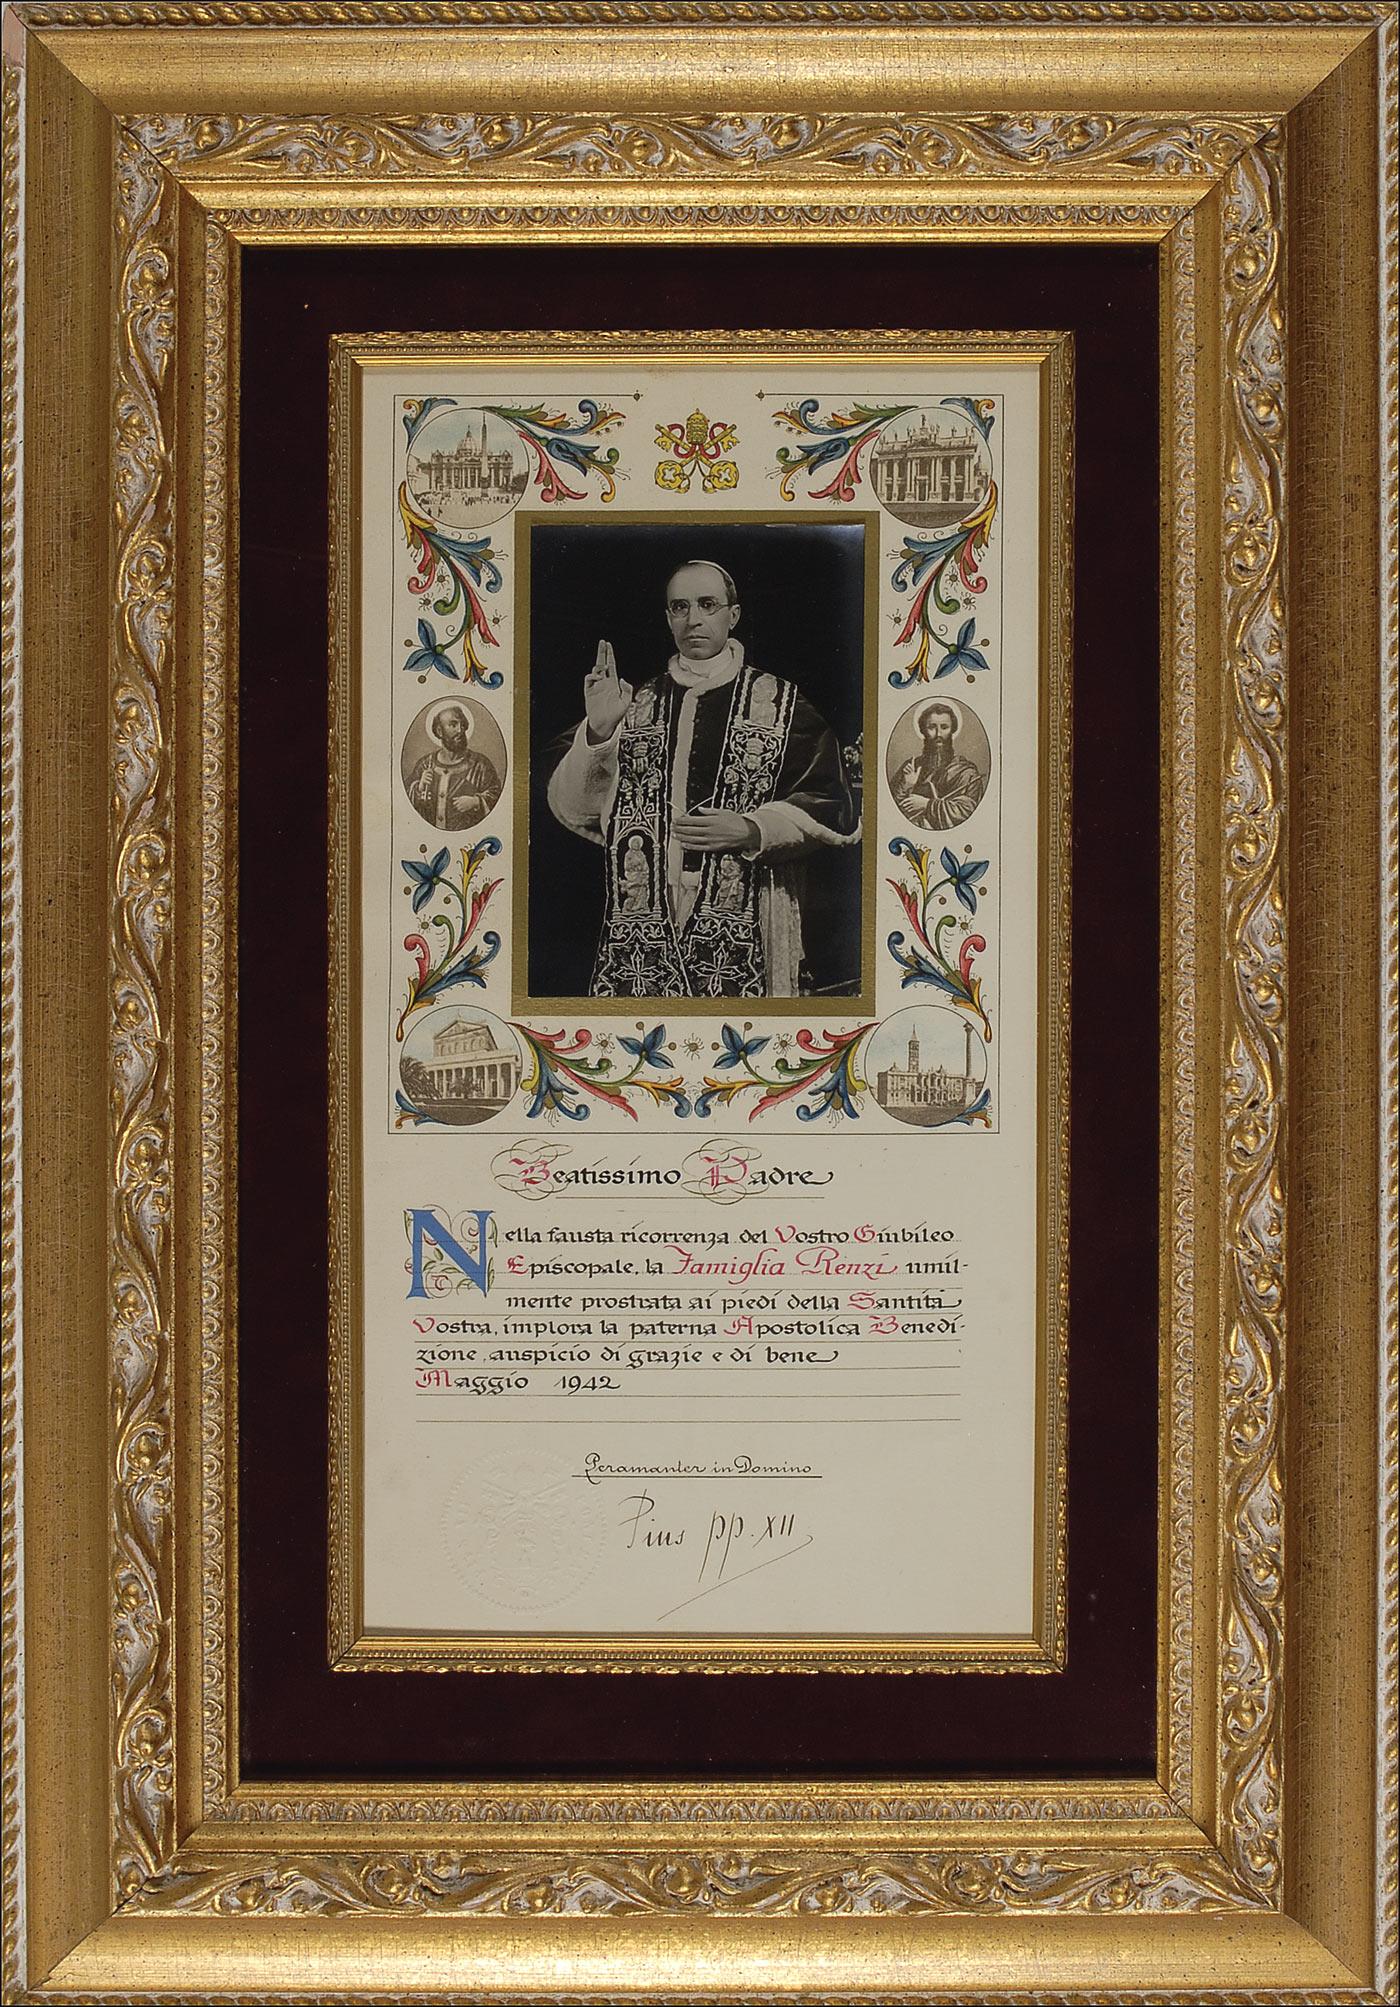 Beatissimo Padre
Nella fausta ricorrenza del Vostro Giubileo
Episcopale, la Famiglia Renzi umil-
mente prostrata ai piedi della Santità
Vostra, implora la paterna Apostolica Benedi-
zione, auspicio di grazie e di bene
Maggio 1942
Peramanter in Domino
Pius pp. XII